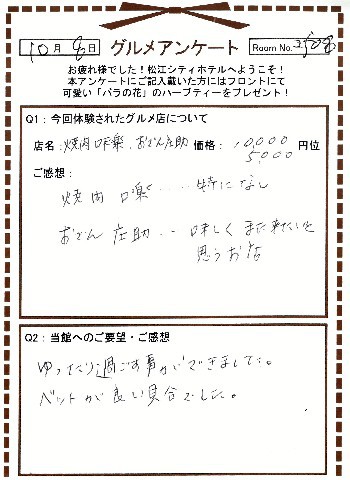 10月8日 グルメアンケート Room No.
お疲れ様でした！松江シティホテルへようこそ！
本アンケートにご記入戴いた方にはフロントにて
可愛い「バラの花」のハーブティーをプレゼント！
Q1：今回体験されたグルメ店について
店名：焼肉 味楽、おでん庄助 価格：10,000 円位
5,000
ご感想：
焼肉 味楽……特になし
おでん 庄助… 味しく また来たいと
思うお店
Q2：当館へのご要望・ご感想
ゆったり過ごす事ができました。
ベットが良い具合でした。